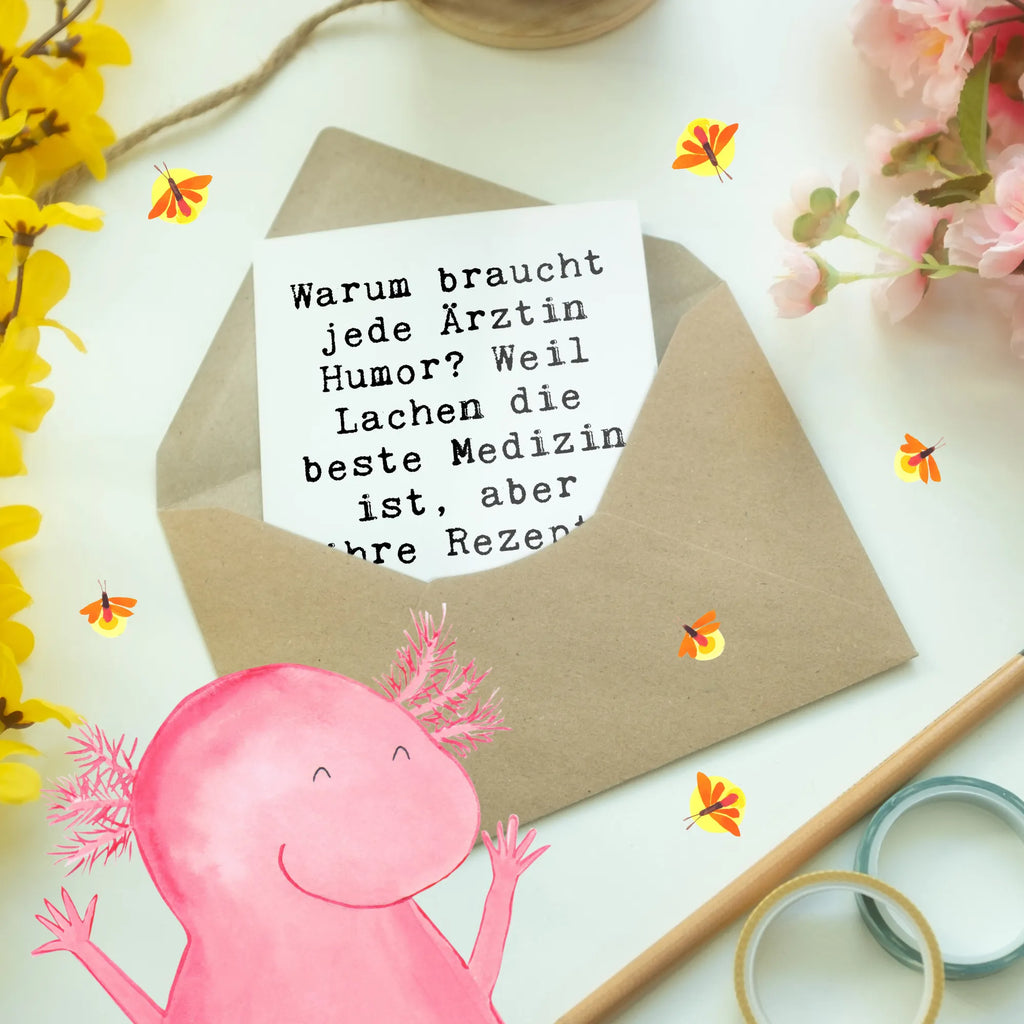 Warum braucht
jede Ärztin
Humor? Weil
Lachen die
beste Medizin
ist, aber
ihre